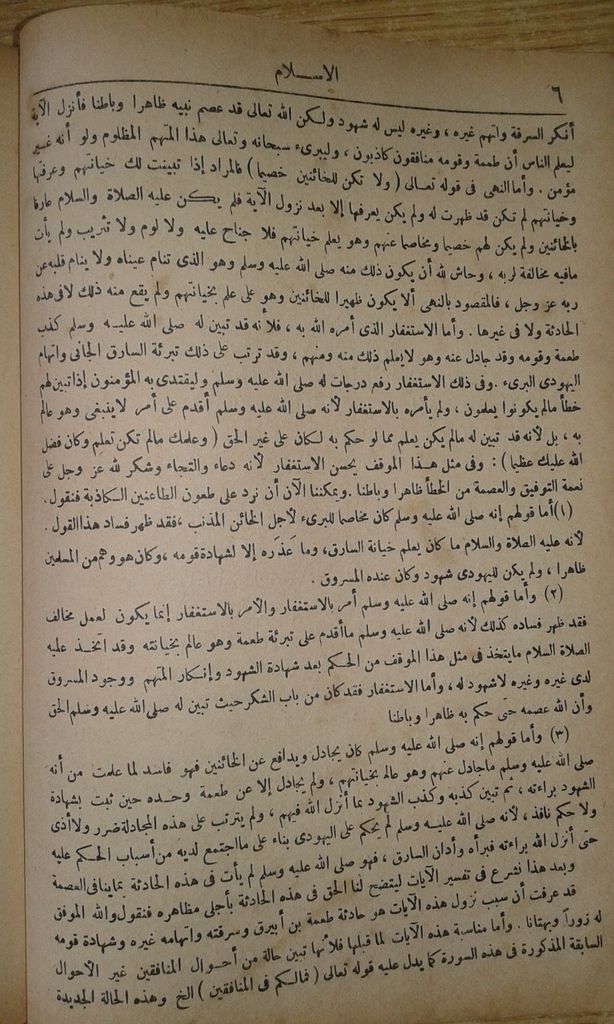 ٦
الاســلام
أفكر السرقة واتهم غيره ، وغيره ليس له شهود ولكن الله تعالى قد عصم نبيه ظاهرا وباطنا فأنزل الآية
ليعلم الناس أن طعمة وقومه منافقون كاذبون ، وليبرىء سبحانه وتعالى هذا المتهم المظلوم ولو أنه غير
مؤمن . وأما النهى فى قوله تعـالى ( ولا تكن للخائنين خصيما ) فالمراد إذا تبينت لك خيانتهم وعرفتها
وخيانتهم لم تكن قد ظهرت له ولم يكن يعرفها إلا بعد نزول الآية فلم يكن عليه الصلاة والسلام عارفا
بالخائنين ولم يكن لهم خصيما ومخاصما عنهم وهو يعلم خيانتهم فلا جناح عليه ولا لوم ولا تثريب ولم يأت
مافيه مخالفة لربه ، وحاش لله أن يكون ذلك منه صلى الله عليه وسلم وهو الذى تنام عيناه ولا ينام قلبه عن
ربه عز وجل ، فالمقصود بالنهى ألا يكون ظهيرا للخائنين وهو على علم بخيانتهم ولم يقع منه ذلك لافى هذه
الحادثة ولا فى غيرها . وأما الاستغفار الذى أمره الله به ، فلأنه قد تبين له صلى الله عليه وسلم كذب
طعمة وقومه وقد جادل عنه وهو لايعلم ذلك منه ومنهم ، وقد ترتب على ذلك تبرئة السارق الجانى واتهام
اليهودى البرىء . وفى ذلك الاستغفار رفع درجات له صلى الله عليه وسلم وليقتدى به المؤمنون إذا تبين لهم
خطأ مالم يكونوا يعلمون ، ولم يأمره بالاستغفار لأنه صلى الله عليه وسلم أقدم على أمر لاينبغى وهو عالم
به ، بل لأنه قد تبين له مالم يكن يعلم مما لو حكم به لكان على غير الحق ( وعلمك مالم تكن تعلم وكان فضل
الله عليك عظيما ) : وفى مثل هـذا الموقف يحسن الاستغفار لأنه دعاء والتجاء وشكر لله عز وجل على
نعمة التوفيق والعصمة من الخطأ ظاهرا وباطنا . ويمكننا الآن أن نرد على طعون الطاعنين الكاذبة فنقول .
(١) أما قولهم إنه صلى الله عليه وسلم كان مخاصما للبرىء لأجل الخائن المذنب ، فقد ظهر فساد هذا القول .
لأنه عليه الصلاة والسلام ما كان يعلم خيانة السارق، وما عذره إلا لشهادة قومه ، وكان هو وهم من المسلمين
ظاهرا ، ولم يكن لليهودى شهود وكان عنده المسروق .
(٢) وأما قولهم إنه صلى الله عليه وسلم أمر بالاستغفار والأمر بالاستغفار إنما يكون لعمل مخالف
فقد ظهر فساده كذلك لأنه صلى الله عليه وسلم ماأقدم على تبرئة طعمة وهو عالم بخيانته وقد اتخذ عليه
الصلاة السلام مايتخذ فى مثل هذا الموقف من الحكم بعد شهادة الشهود وإنكار المتهم ووجود المسروق
لدى غيره وغيره لاشهود له ، وأما الاستغفار فقد كان من باب الشكر حيث تبين له صلى الله عليه وسلم الحق
وأن الله عصمه حتى حكم به ظاهرا وباطنا
(٣) وأما قولهم إنه صلى الله عليه وسلم كان يجادل ويدافع عن الخائنين فهو فاسد لما علمت من أنه
صلى الله عليه وسلم ماجادل عنهم وهو عالم بخيانتهم ، ولم يجادل إلا عن طعمة وحـده حين ثبت بشهادة
الشهود براءته ، ثم تبين كذبه وكذب الشهود بما أنزل الله فيهم ، ولم يترتب على هذه المجادلة ضرر ولاأذى
ولا حكم نافذ ، لأنه صلى الله عليه وسلم لم يحكم على اليهودى بناء على مااجتمع لديه من أسباب الحكم عليه
حتى أنزل الله براءته فبرأه وأدان السارق ، فهو صلى الله عليه وسلم لم يأت فى هذه الحادثة بماينافى العصمة
وبعد هذا نشرع فى تفسير الآيات ليتضح لنا الحق فى هذه الحادثة بأجلى مظاهره فنقول والله الموفق
قد عرفت أن سبب نزول هذه الآيات هو حادثة طعمة بن أبيرق وسرقته واتهامه غيره وشهادة قومه
له زوراً وبهتانا . وأما مناسبة هذه الآيات لما قبلها فلأنها تبين حالة من أحـوال المنافقين غير الأحوال
السابقة المذكورة فى هذه السورة كما يدل عليه قوله تعالى ( فمالـكم فى المنافقين ) الخ وهذه الحالة الجديدة